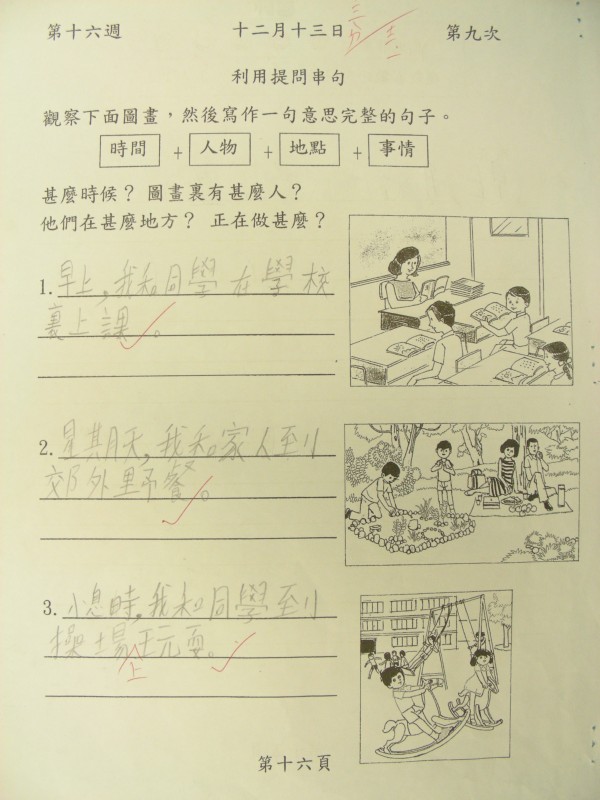 第十六週 十二月十三日 第九次
利用提問串句
觀察下面圖畫，然後寫作一句意思完整的句子。
時間 + 人物 + 地點 + 事情
甚麼時候？ 圖畫裏有甚麼人？
他們在甚麼地方？ 正在做甚麼？
1. 早上,我和同學在學校
裏上課。
2. 星期天,我和家人到
郊外野餐。
3. 小息時,我和同學到
操場玩耍。
上
第十六頁